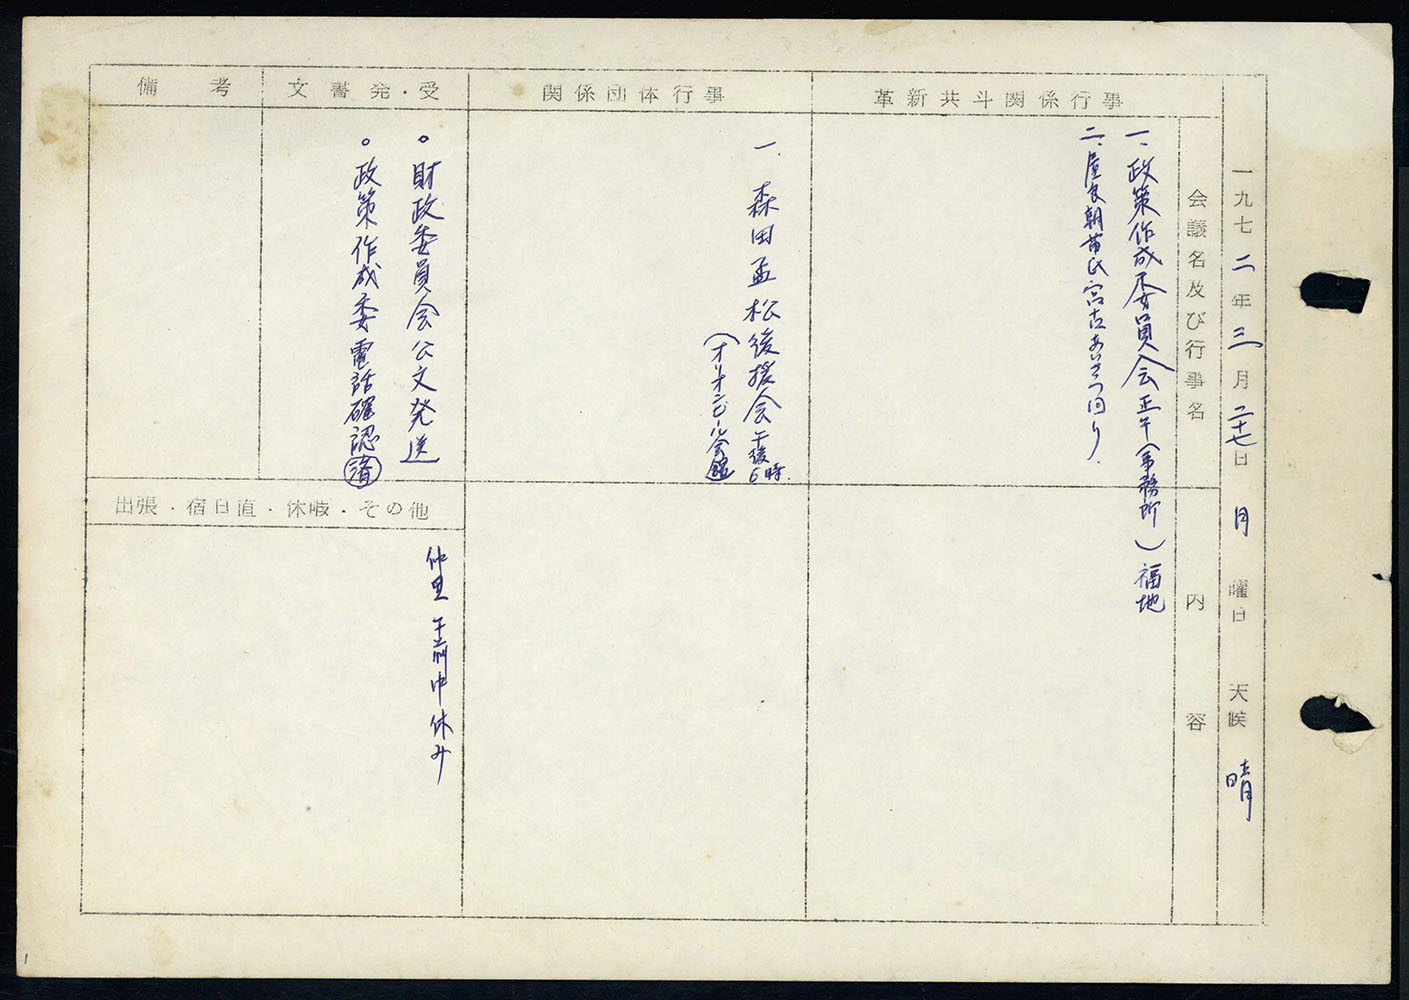 一九七二年三月二十七日 月曜日 天候 晴
会議名及び行事名
内容
革新共斗関係行事
一、政策作成委員会正午(事務所)福地
二、屋良朝苗氏宮古あいさつ回り
関係団体行事
一、森田孟松後援会午後6時
(オリオンビール会館
文書発・受
○財政委員会公文発送
○政策作成委電話確認済
備考
出張・宿日直・休暇・その他
仲里 午前中休み
1